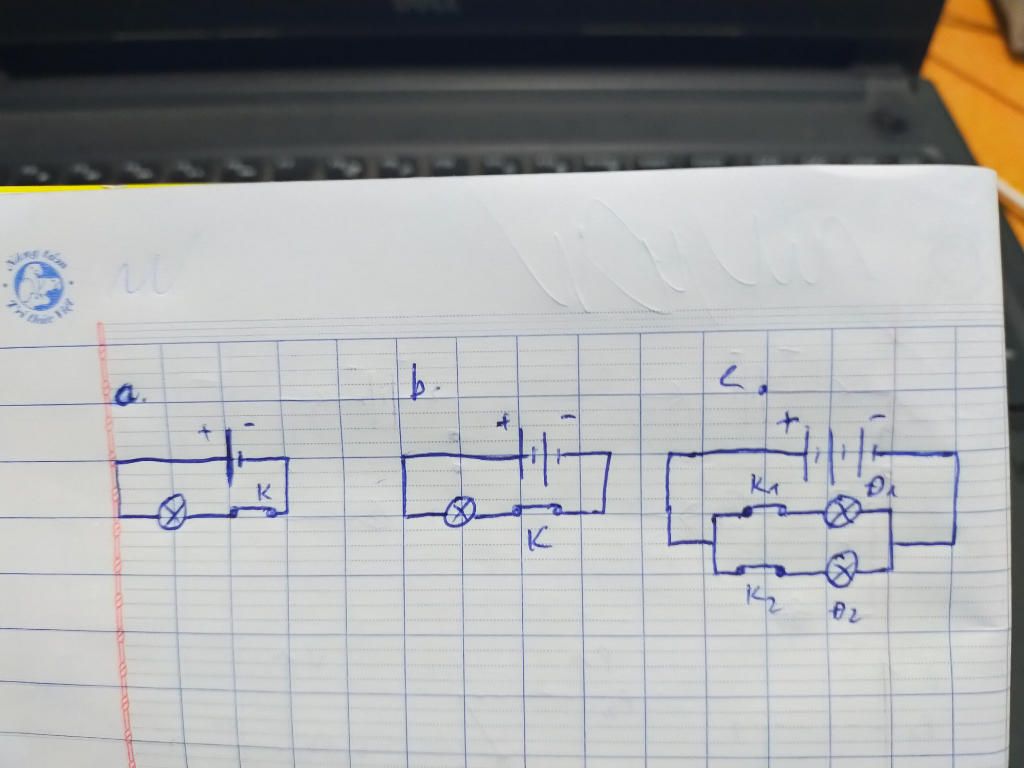 DELL
Nâng tầm
Tri thức Việt
a.
b.
c.
+ -
+ -
+ -
K
K
K1
Đ1
K2
Đ2